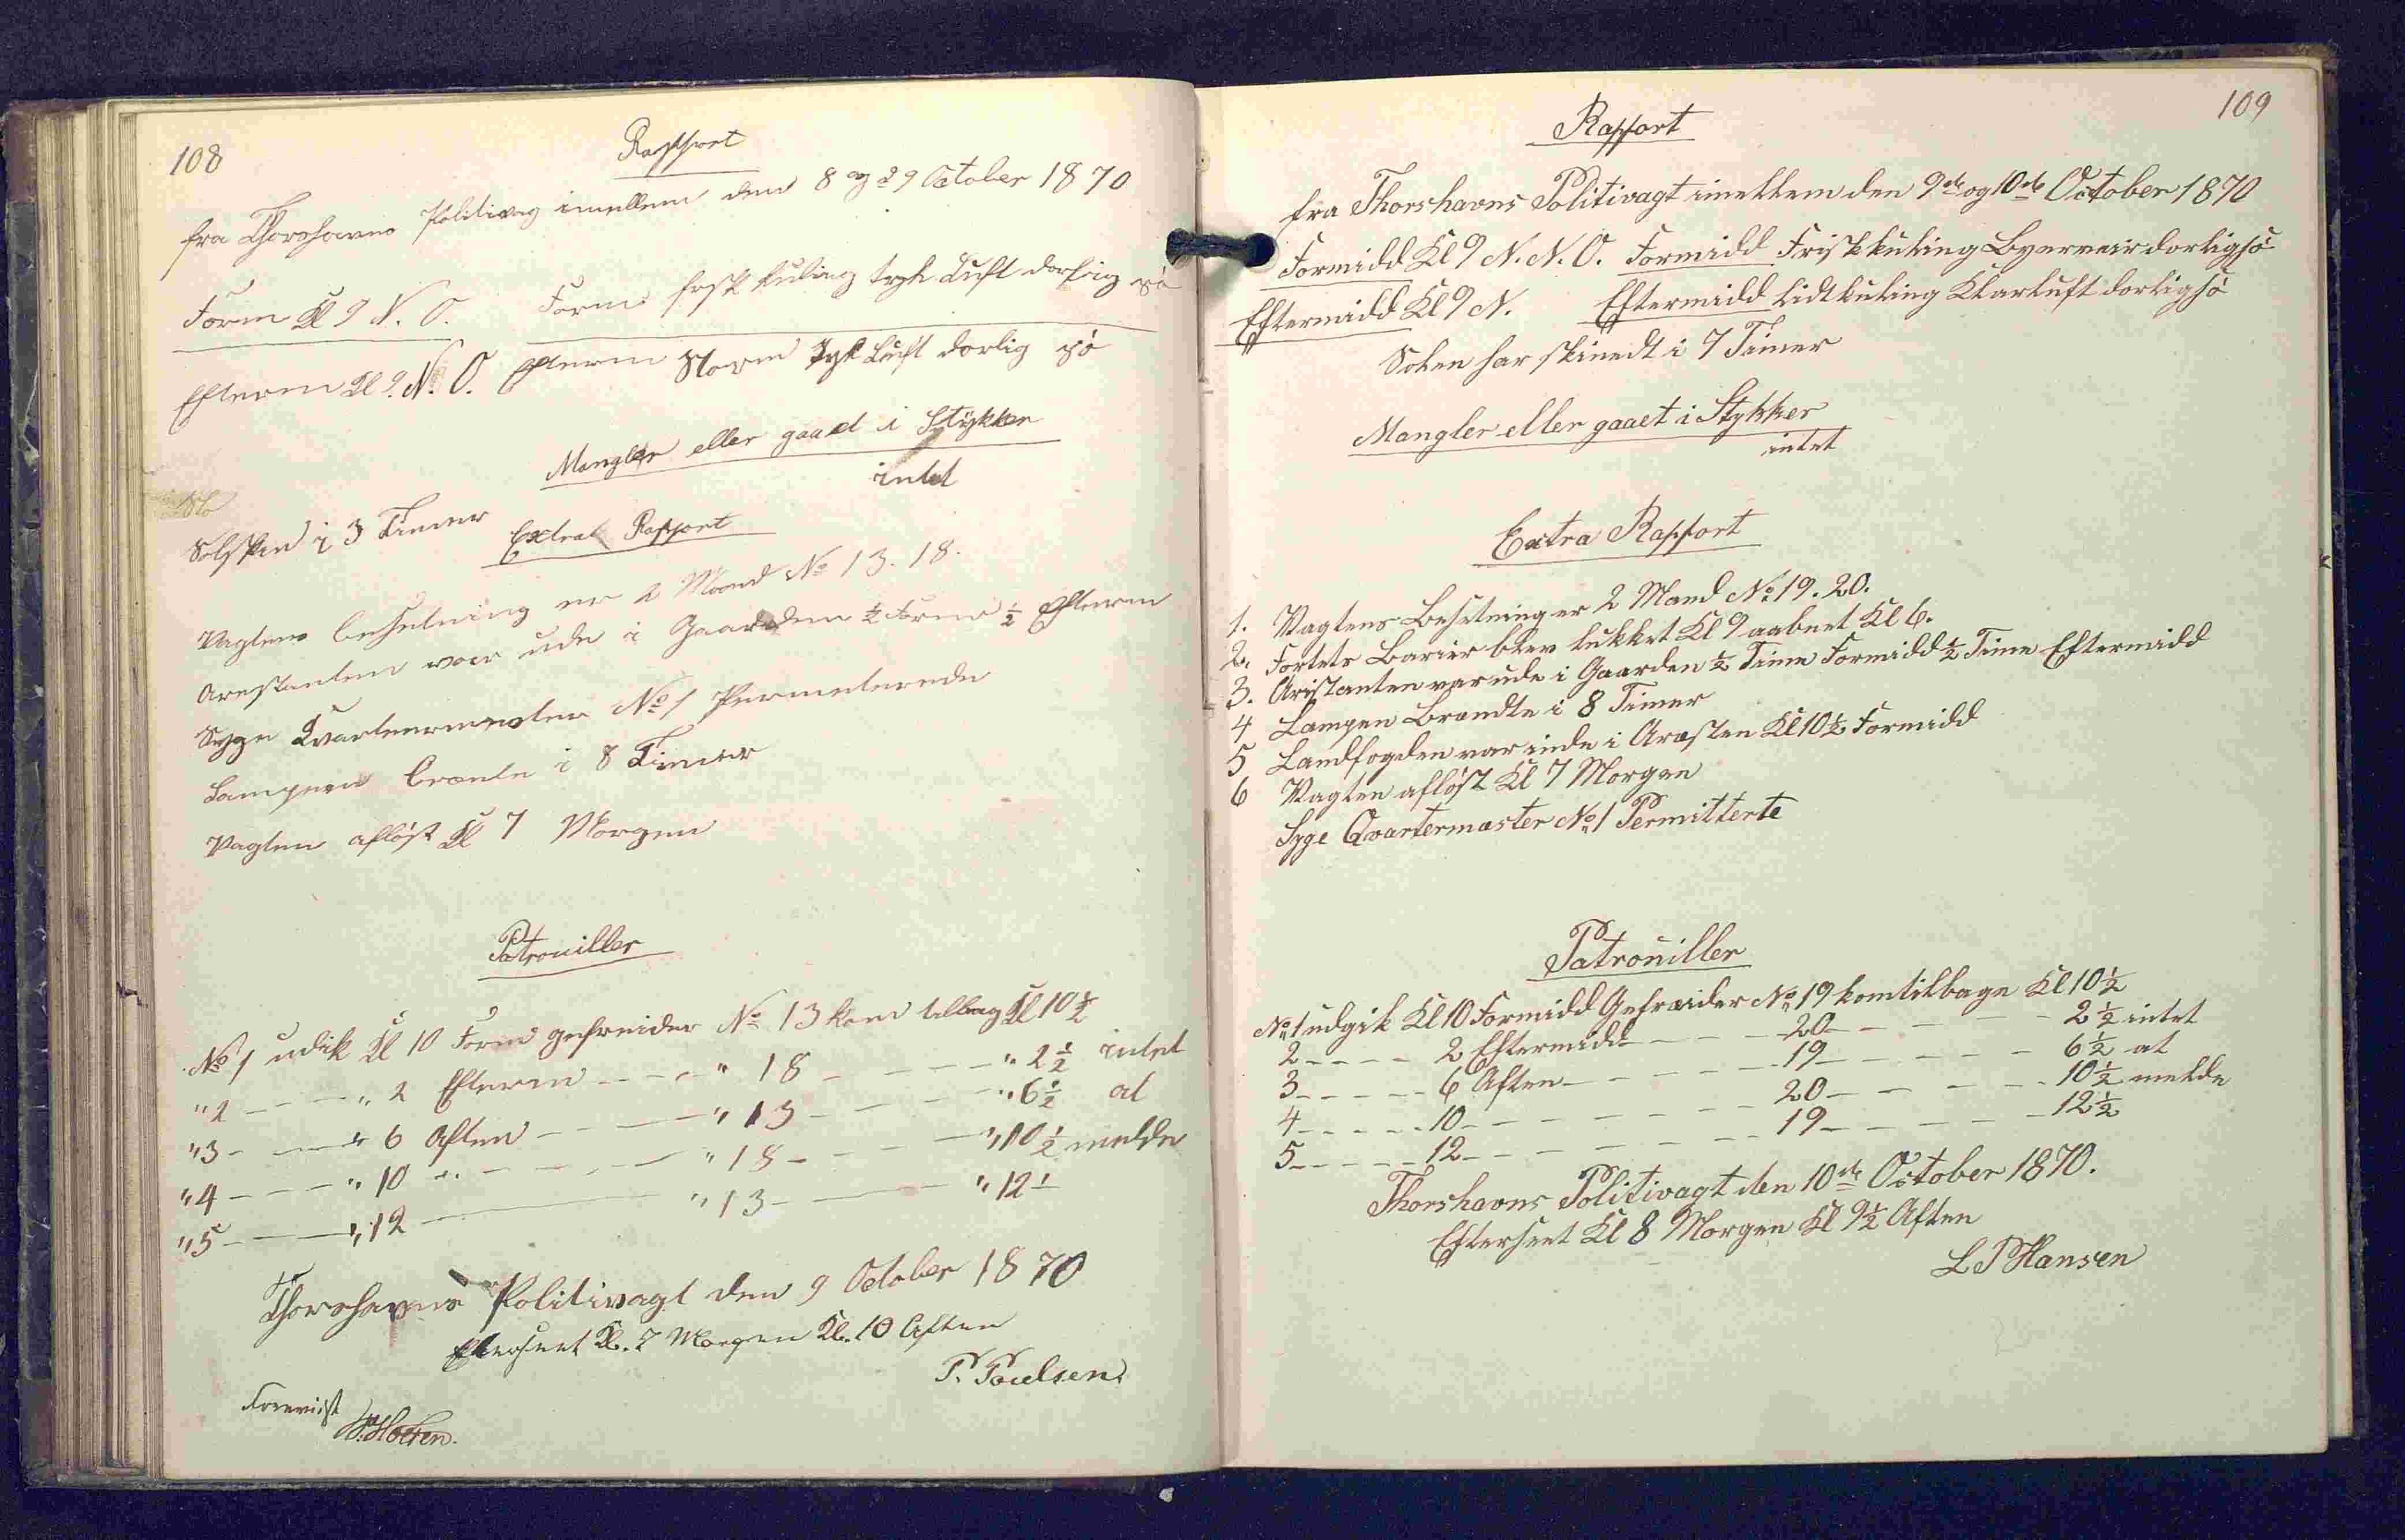 108
Rapport
fra Thorshavns Politivag imellem den 8 og 9 October 1870
Form Kl 9 N. O. Form frisk kuling tyk Luft dorlig sö
Efterm Kl 9. N. O. Efterm Storm Tyk Luft dorlig sö
Mangler eller gaaet i Stÿkker
intet
Solskin i 3 Timer
Extra Rapport
Vagtens besetning er 2 Mand No 13. 18.
Arestanten var ude i Gaarden ½ Form ½ Efterm
Syge Kvarteermester No 1 Permeterede
Lampen brænte i 8 Timer
Vagten aflöst Kl 7 Morgen
Patrouiller
No 1 udik Kl 10 Form gefreider No 13 kom tilbag Kl 10½
" 2 - - - " 2 Efterm - - - " 18 - - - " 2½ intet
" 3 - - - " 6 Aften - - - " 13 - - - " 6½ at
" 4 - - - " 10 " - - - " 18 - - - " 10½ melde
" 5 - - - " 12 - - - " 13 - - - " 12½
Thorshavns Politivagt den 9 October 1870
Efterseet Kl. 7 Morgen Kl. 10 Aften
P. Poulsen
Forevist
109
Rapport
fra Thorshavns Politivagt imellem den 9de og 10de October 1870
Formidd Kl 9 N. N. O. Formidd Friskkuling Byerveir dorligsö
Eftermidd Kl 9 N. Eftermidd Lidtkuling Klarluft dorligsö
Solen har skinedt i 7 Timer
Mangler eller gaaet i Stykker
intet
Extra Rapport
1. Vagtens Besetning er 2 Mand No 19. 20.
2. Fortets Barier blev lukket Kl 9 aabnet Kl 6.
3. Aristanten var ude i Gaarden ½ Time Formidd ½ Time Eftermidd
4 Lampen Brændte i 8 Timer
5 Landfogden var inde i Aræsten Kl 10½ Formidd
6 Vagten aflöst Kl 7 Morgen
Syge Qvartermæster No 1 Permitterte
Patrouiller
No 1 udgik Kl 10 Formidd Gefreider No 19 kom tilbage Kl 10½
2 - - - - 2 Eftermidd - - - - 20 - - - - 2½ intet
3 - - - - 6 Aften - - - - 19 - - - - 6½ at
4 - - - - 10 - - - - 20 - - - - 10½ melde
5 - - - - 12 - - - - 19 - - - - 12½
Thorshavns Politivagt den 10de October 1870.
Efterseet Kl 8 Morgen Kl 9½ Aften
L P Hansen